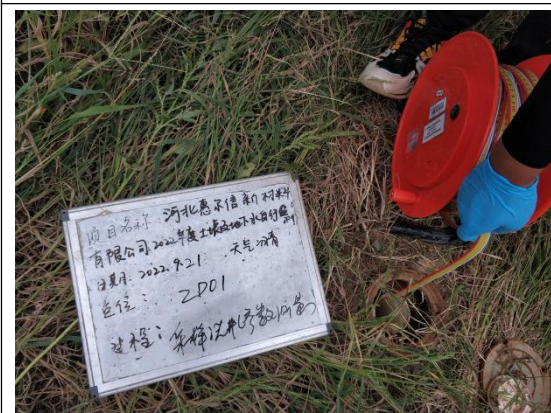 项目名称: 河北惠尔信新材料
有限公司2022年度土壤及地下水自行监测
日期: 2022.9.21 天气: 晴
点位: ZD01
过程: 采样洗井参数测量